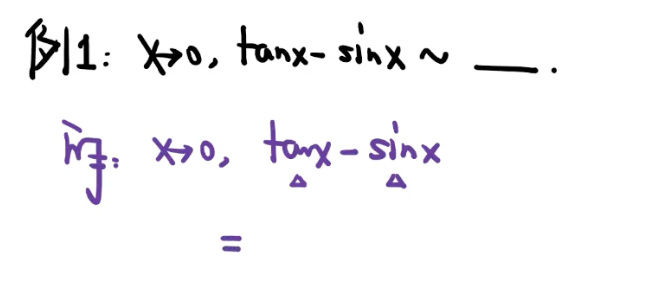 例1: x→0, tanx - sinx ~ ___.
评: x→0, tanx - sinx
△ △
=